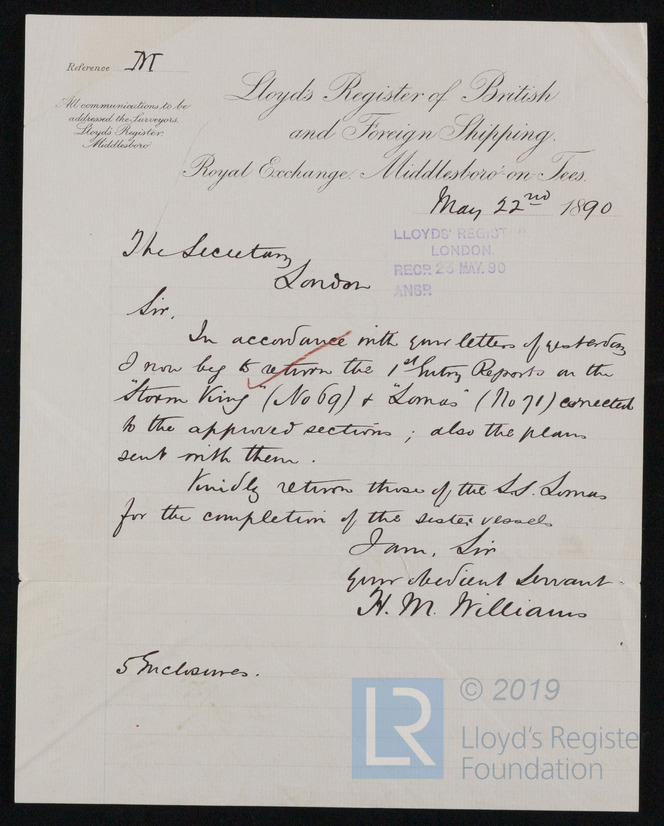 Reference M
All communications to be
addressed the Surveyors.
Lloyd's Register.
Middlesboro'
Lloyd's Register of British
and Foreign Shipping.
Royal Exchange. Middlesboro'-on-Tees.
May 22nd 1890
LLOYDS' REGIST
LONDON.
RECR 23 MAY. 90
ANSR
The Secretary
London
Sir,
In accordance with your letters of yesterday
I now beg to return the 1st Entry Reports on the
"Storm King" (No 69) & "Lomas" (No 71) corrected
to the approved sections ; also the plans
sent with them.
Kindly return those of the S.S. Lomas
for the completion of the sister vessels
I am, Sir
your obedient Servant
H. M. Williams
5 Enclosures.
LR
© 2019
Lloyd's Register
Foundation